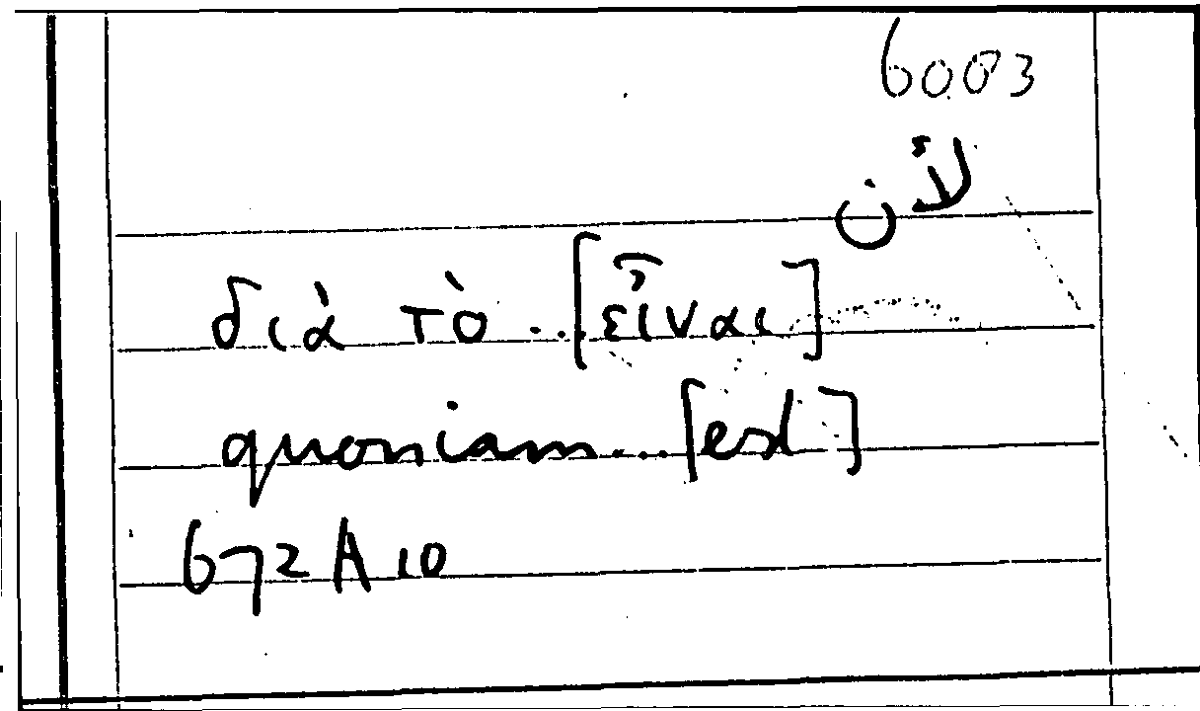 6003
لأن
διὰ τὸ ... [εἶναι]
quoniam... [est]
672A10